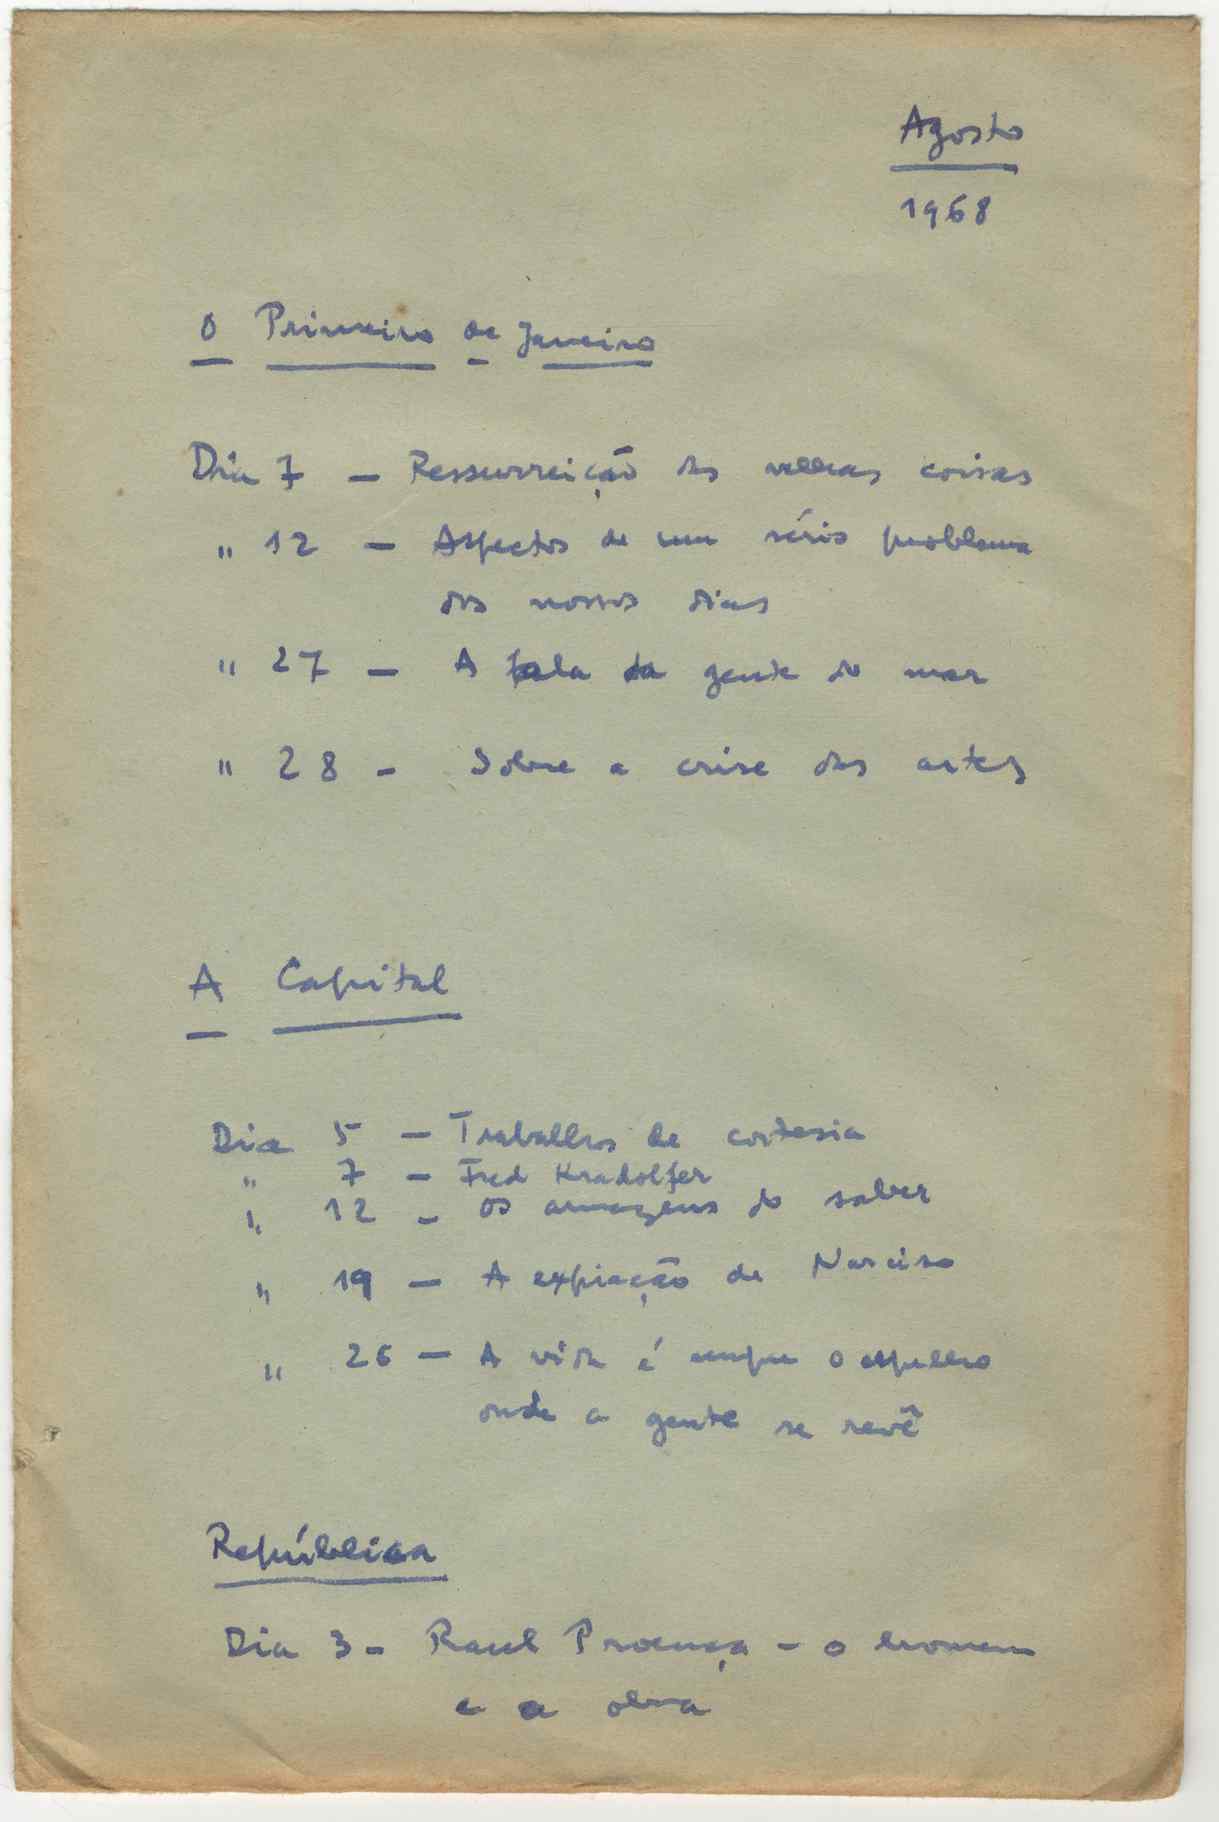 Agosto
1968
O Primeiro de Janeiro
Dia 7 - Ressurreição das velhas coisas
" 12 - Aspectos de um sério problema
dos nossos dias
" 27 - A fala da gente do mar
" 28 - Sobre a crise das artes
A Capital
Dia 5 - Trabalhos de cortesia
" 7 - Fred Kradolfer
" 12 - Os armazens do saber
" 19 - A expiação de Narciso
" 26 - A vida é sempre o espelho
onde a gente se revê
República
Dia 3 - Raul Proença - o homem
e a obra